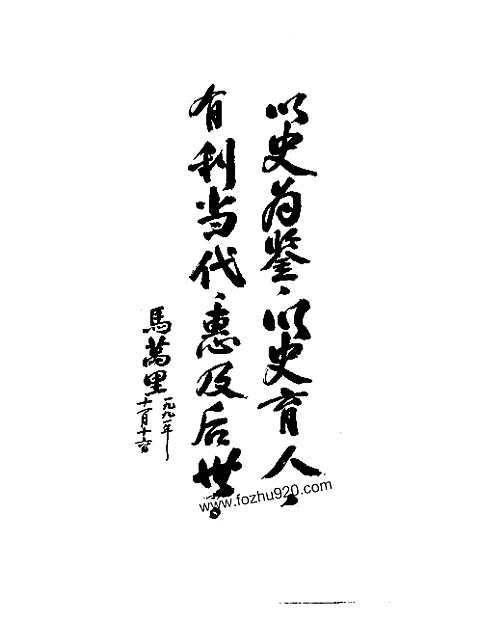 以史为鉴，以史育人，
有利当代，惠及后世。
馬萬里
一九九一年
十一月十六日
www.fozhu920.com